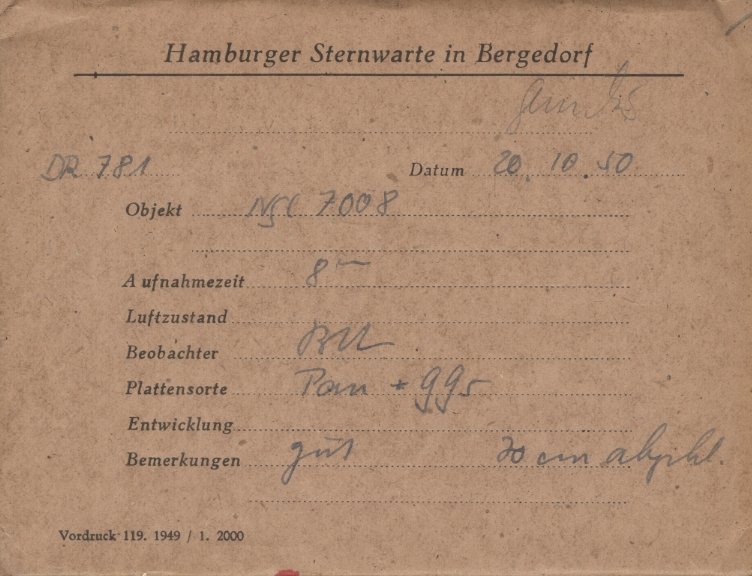 Hamburger Sternwarte in Bergedorf
DR 781 Datum 20.10.50
Objekt NGC 7008
Aufnahmezeit 8
Luftzustand
Beobachter
Plattensorte Pan + 995
Entwicklung
Bemerkungen gut 20 cm
Vordruck 119. 1949 / 1. 2000